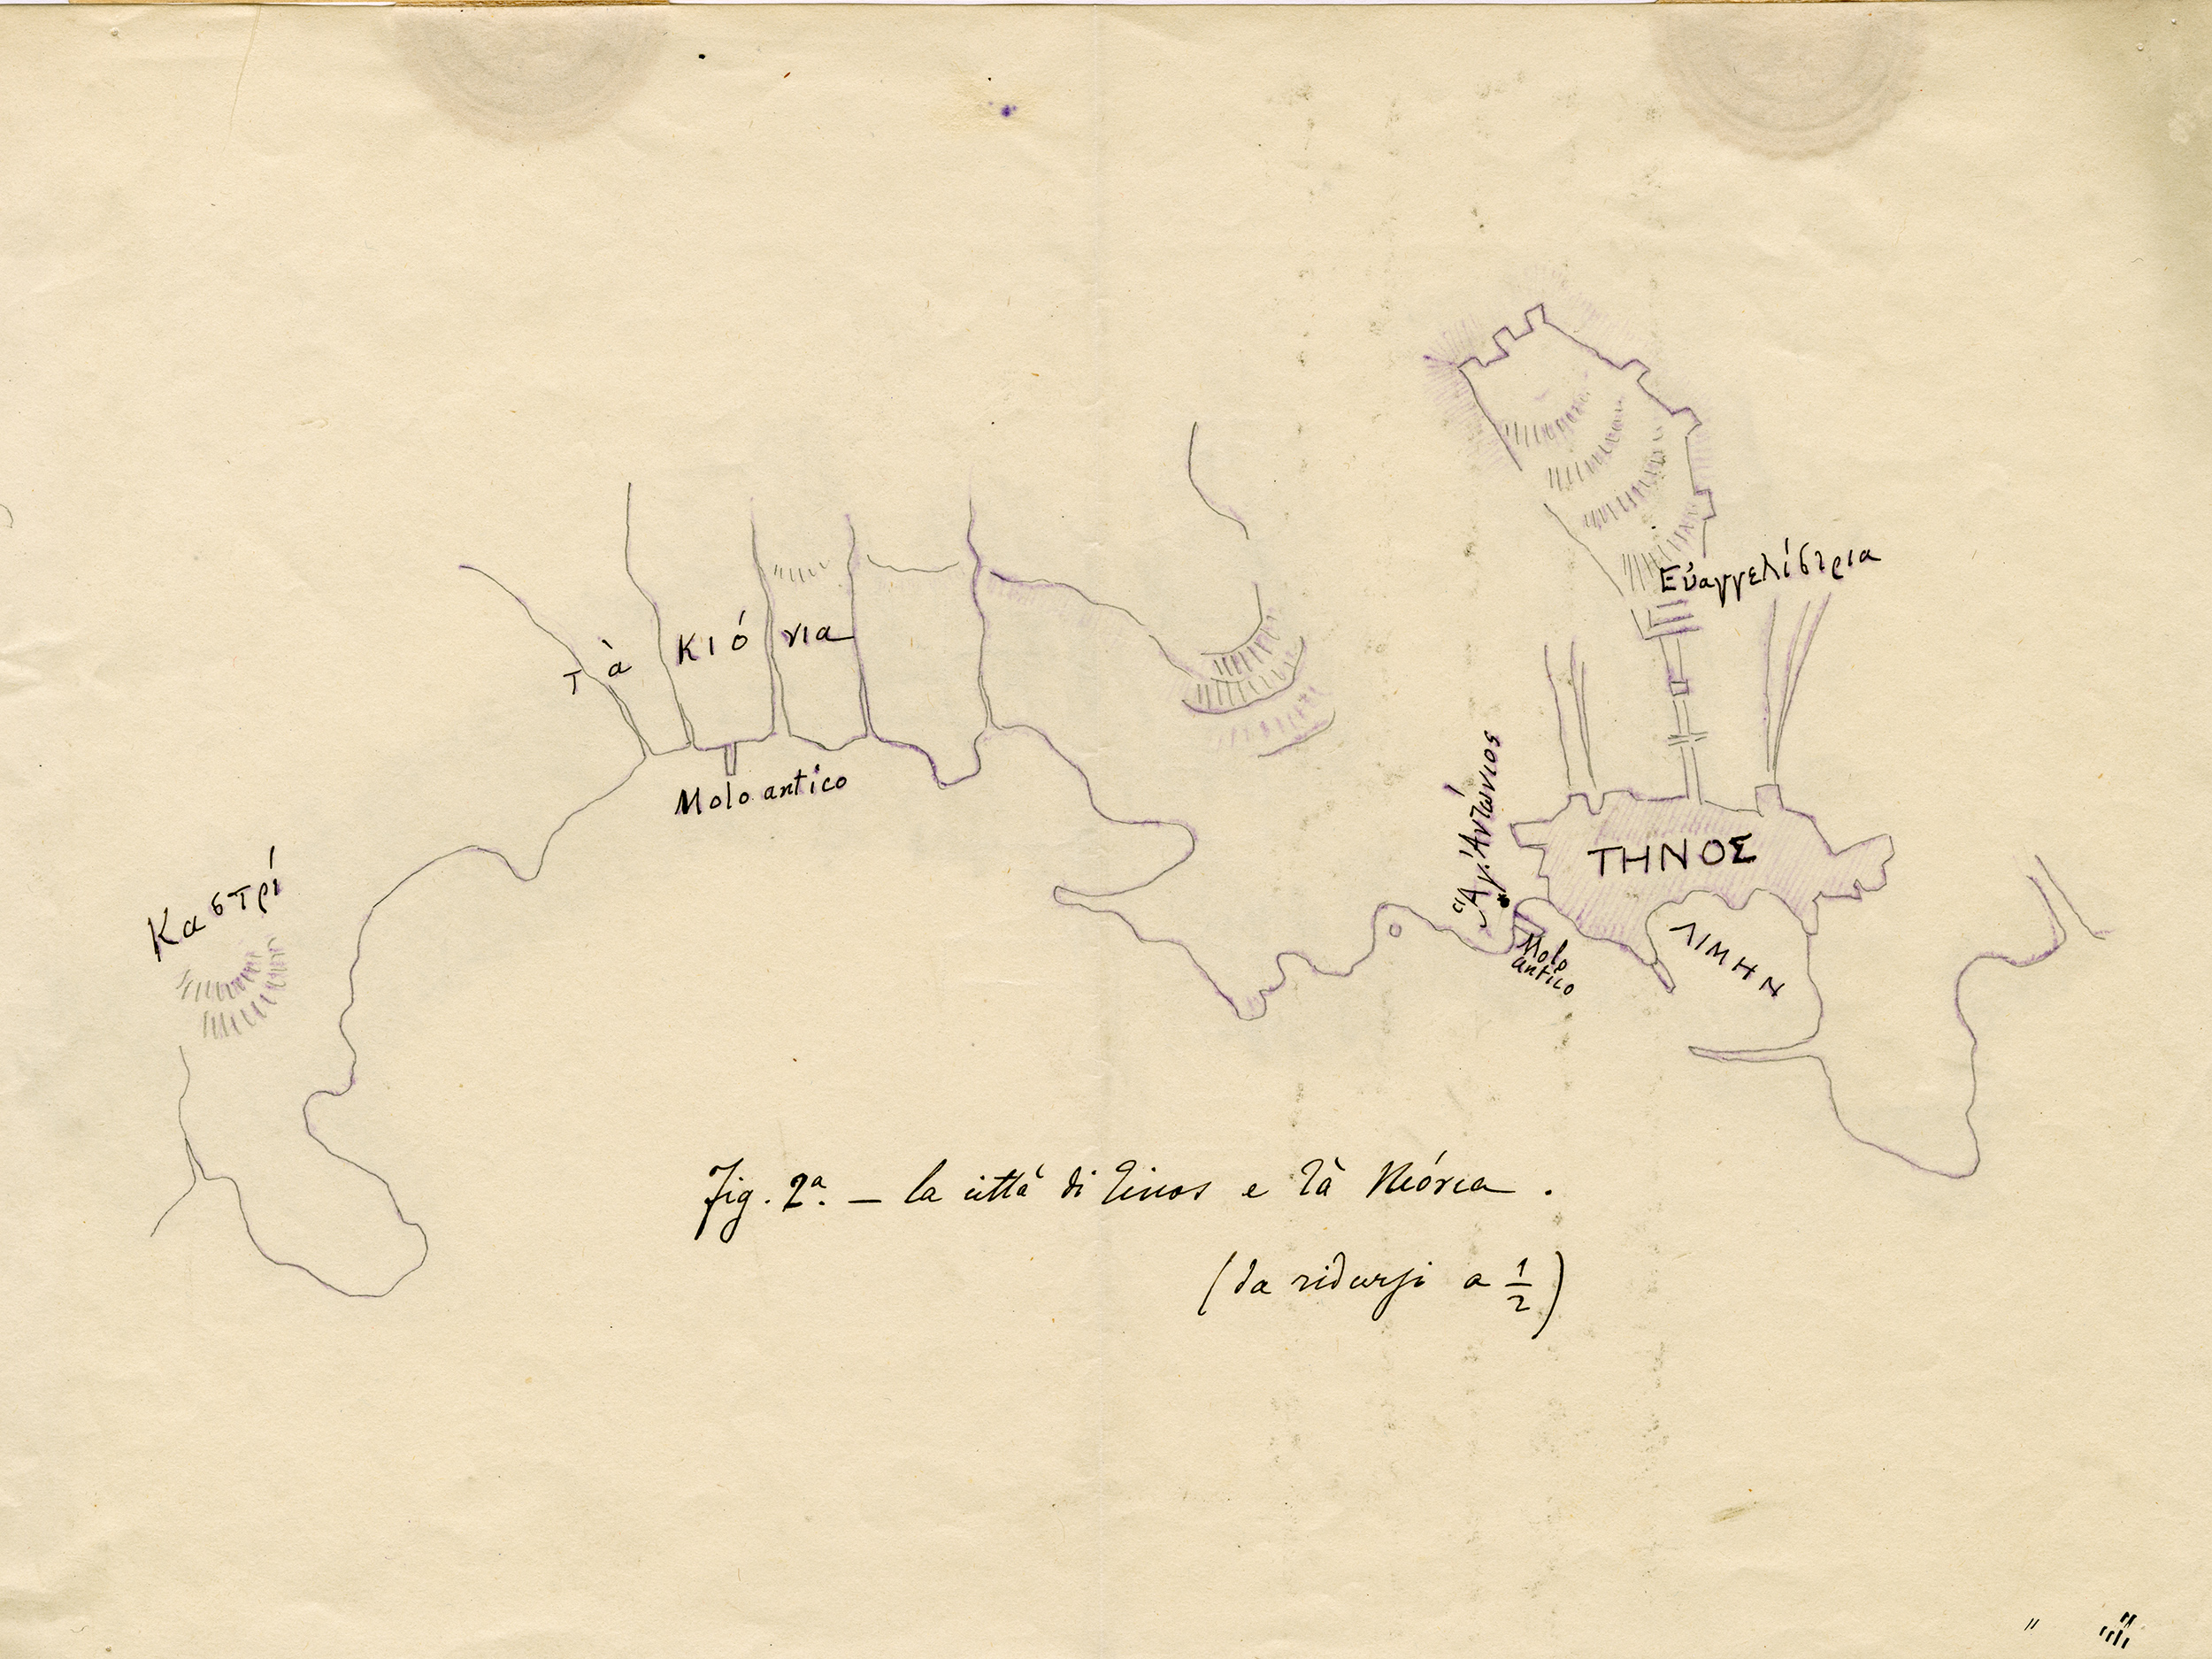 Εὐαγγελίστρια
Τὰ Κιόνια
Molo antico
Ἅγ. Ἀντώνιος
ΤΗΝΟΣ
Καστρί
ΛΙΜΗΝ
Molo
antico
Fig. 2ª. — la città di Tinos e Τὰ Κιόνια.
(da ridursi a 1/2)